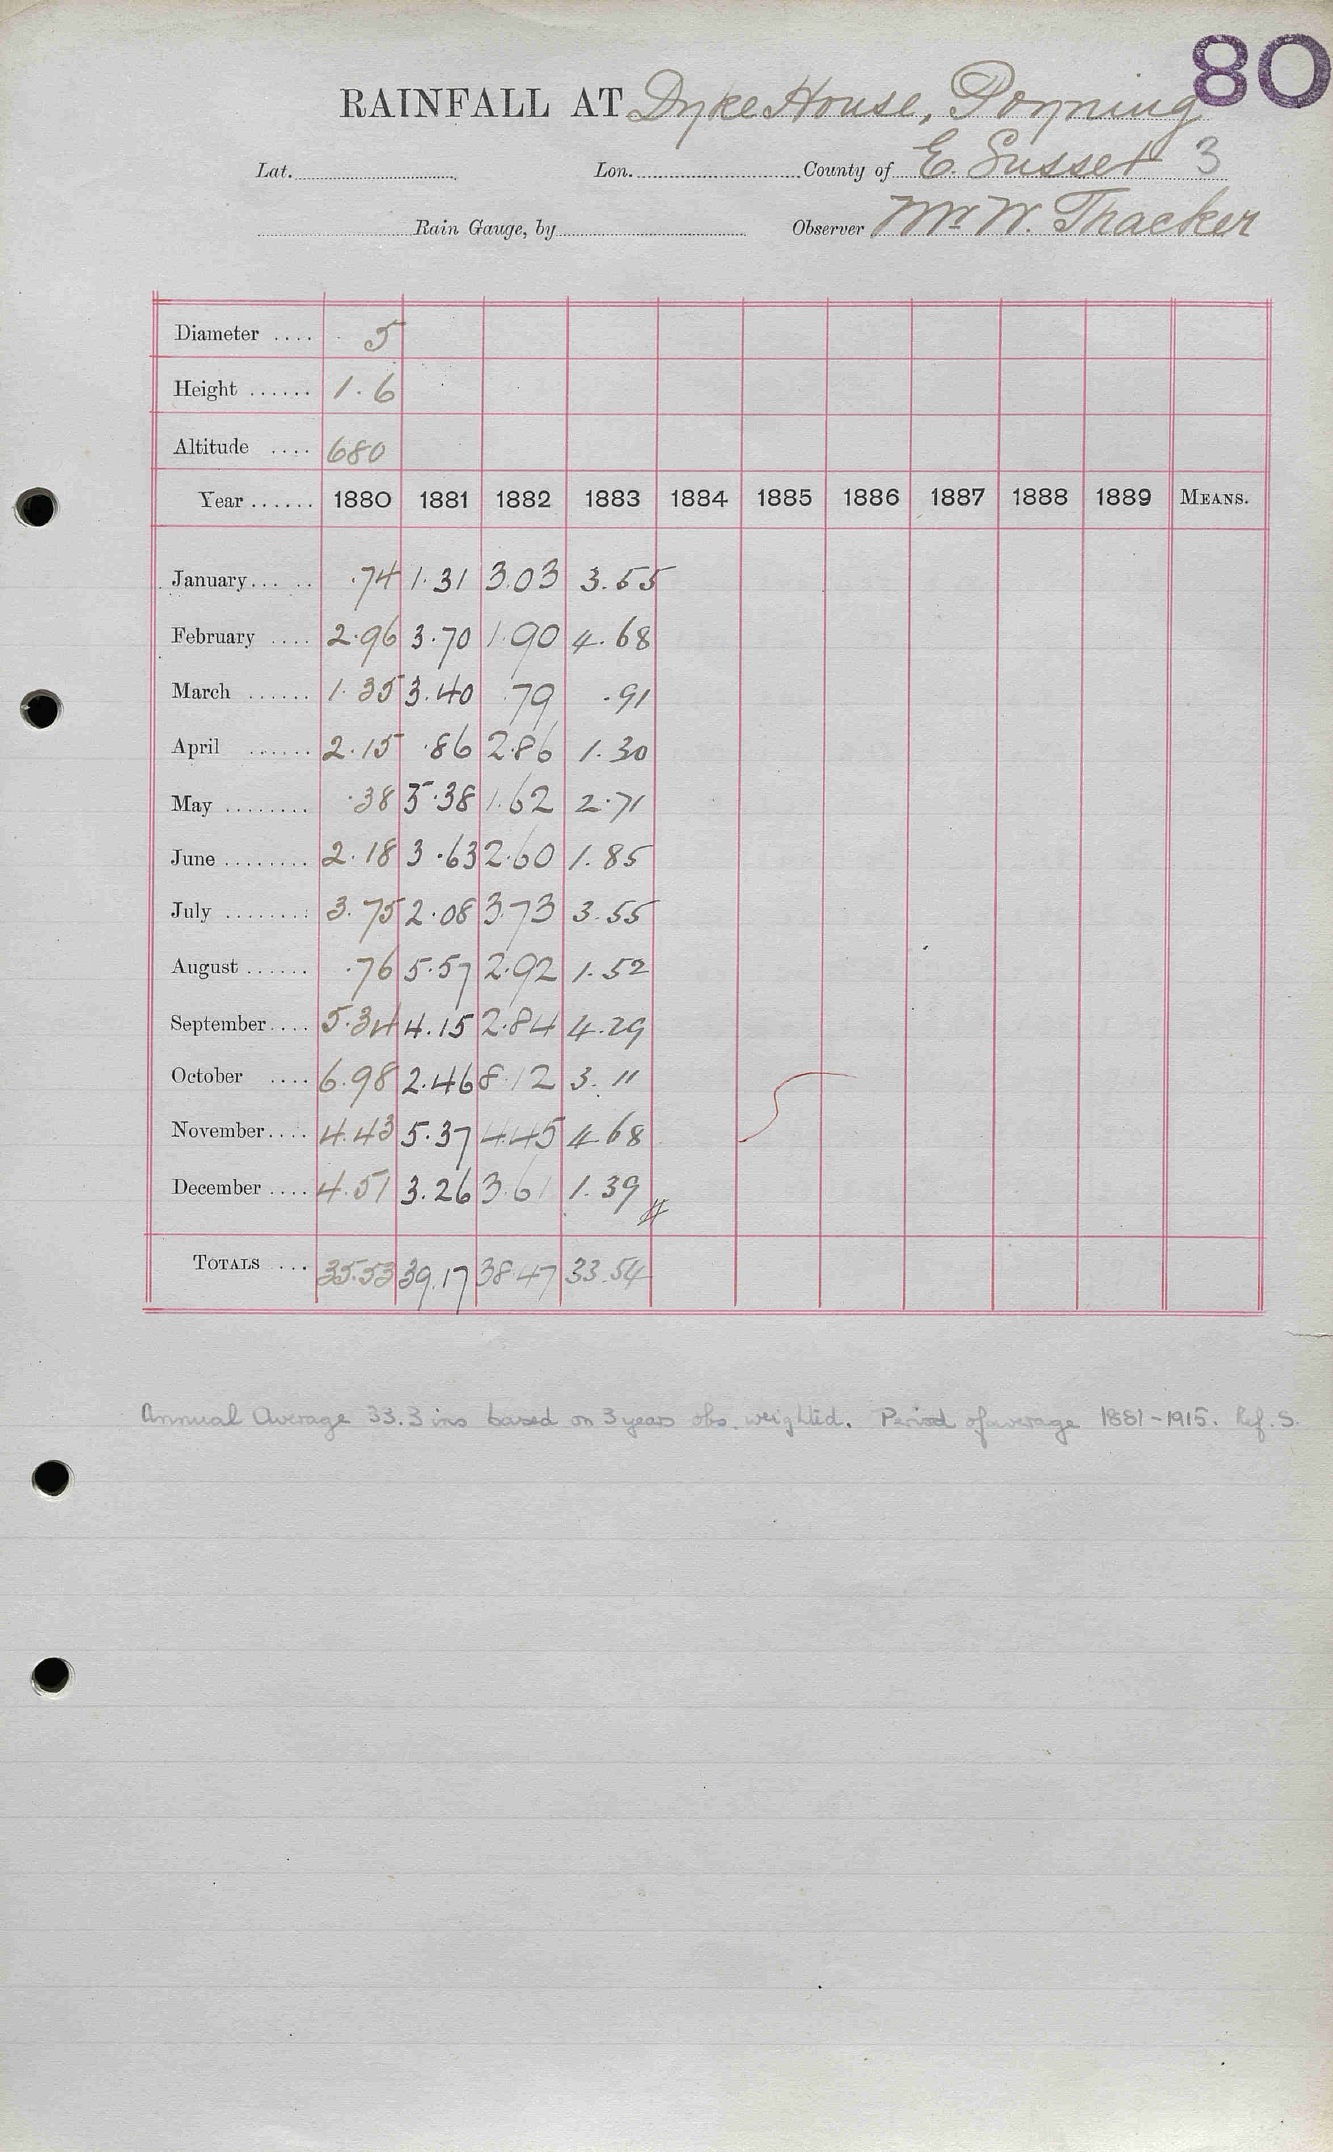 80
RAINFALL AT Dyke House, Poyning
Lat. Lon. County of E. Sussex 3
Rain Gauge, by Observer Mr W. Thacker
Diameter .... 5
Height ...... 1.6
Altitude .... 680
Year ...... 1880 1881 1882 1883 1884 1885 1886 1887 1888 1889 MEANS.
January ... .. .74 1.31 3.03 3.55
February .... 2.96 3.70 1.90 4.68
March ...... 1.35 3.40 .79 .91
April ...... 2.15 .86 2.86 1.30
May ........ .38 3.38 1.62 2.71
June ........ 2.18 3.63 2.60 1.85
July ........ 3.75 2.08 3.73 3.55
August ...... .76 5.57 2.92 1.52
September .... 5.34 4.15 2.84 4.29
October .... 6.98 2.46 8.12 3.11
November .... 4.43 5.37 4.45 4.68
December .... 4.51 3.26 3.61 1.39
TOTALS ... 35.53 39.17 38.47 33.54
Annual Average 33.3 ins based on 3 years obs. weighted. Period of average 1881-1915. Ref. S.